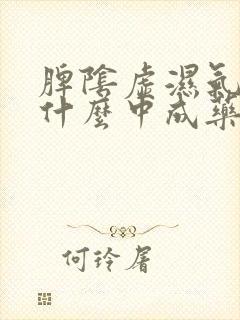 脾陰虛濕氣
什麼中成藥
何玲屠